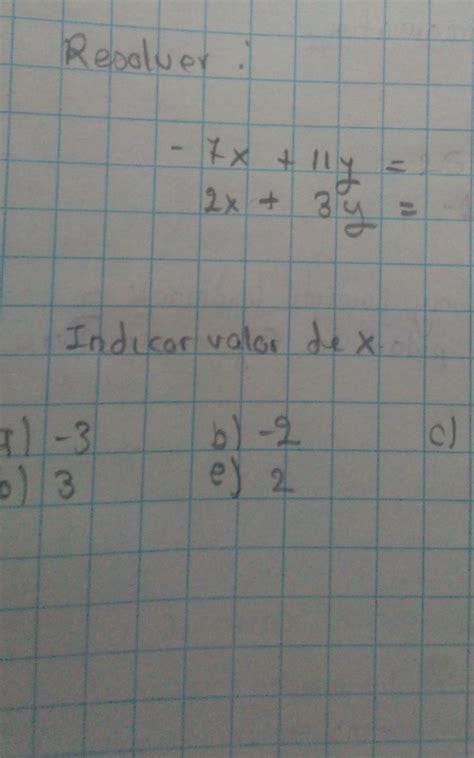 Resolver :
- 7x + 11y =
2x + 3y =
Indicar valor de x
a) -3 b) -2 c)
3 e) 2